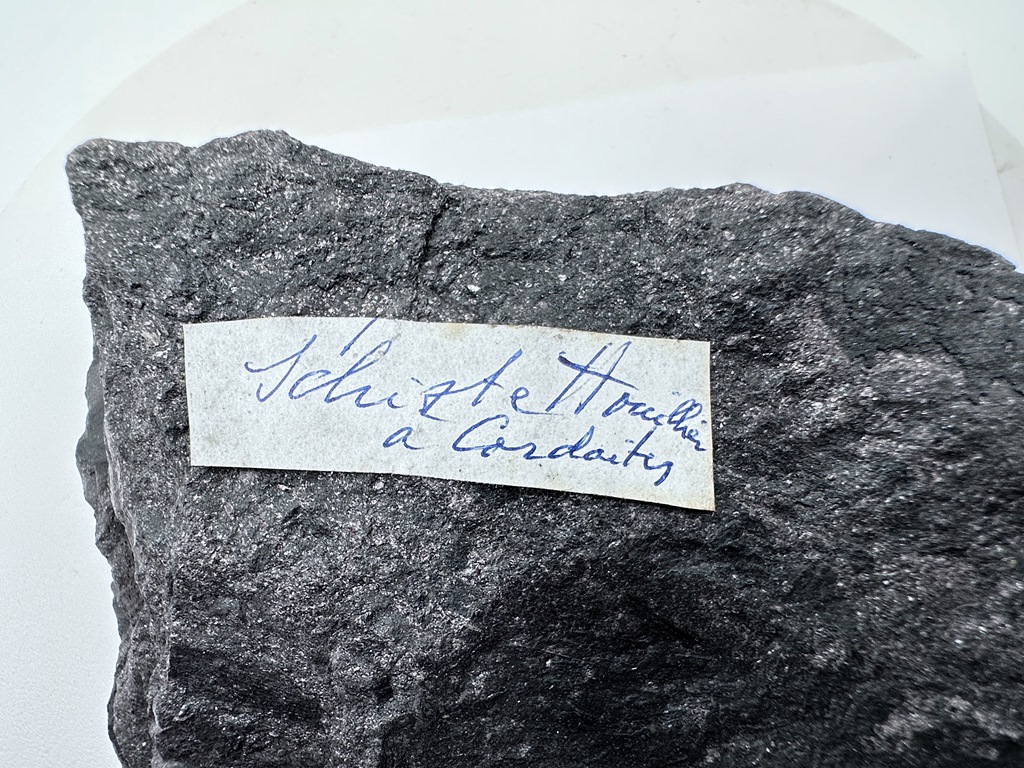 Schiste Houillier
a Cordaïtes